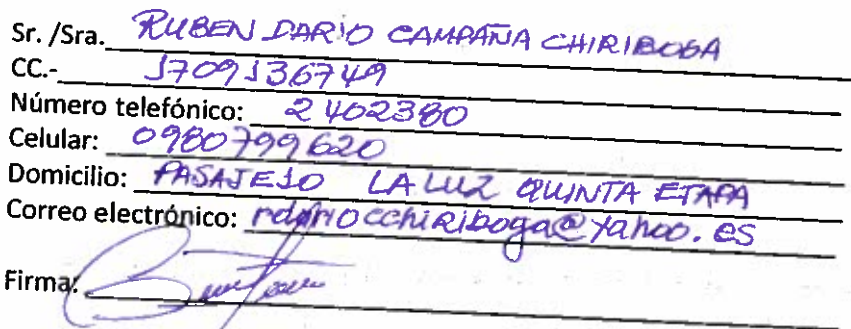 Sr. /Sra. RUBEN DARIO CAMPAÑA CHIRIBOGA
CC.- 1709136749
Número telefónico: 2402380
Celular: 0980799620
Domicilio: PASAJE 10 LA LUZ QUINTA ETAPA
Correo electrónico: rdariocchiriboga@yahoo.es
Firma: